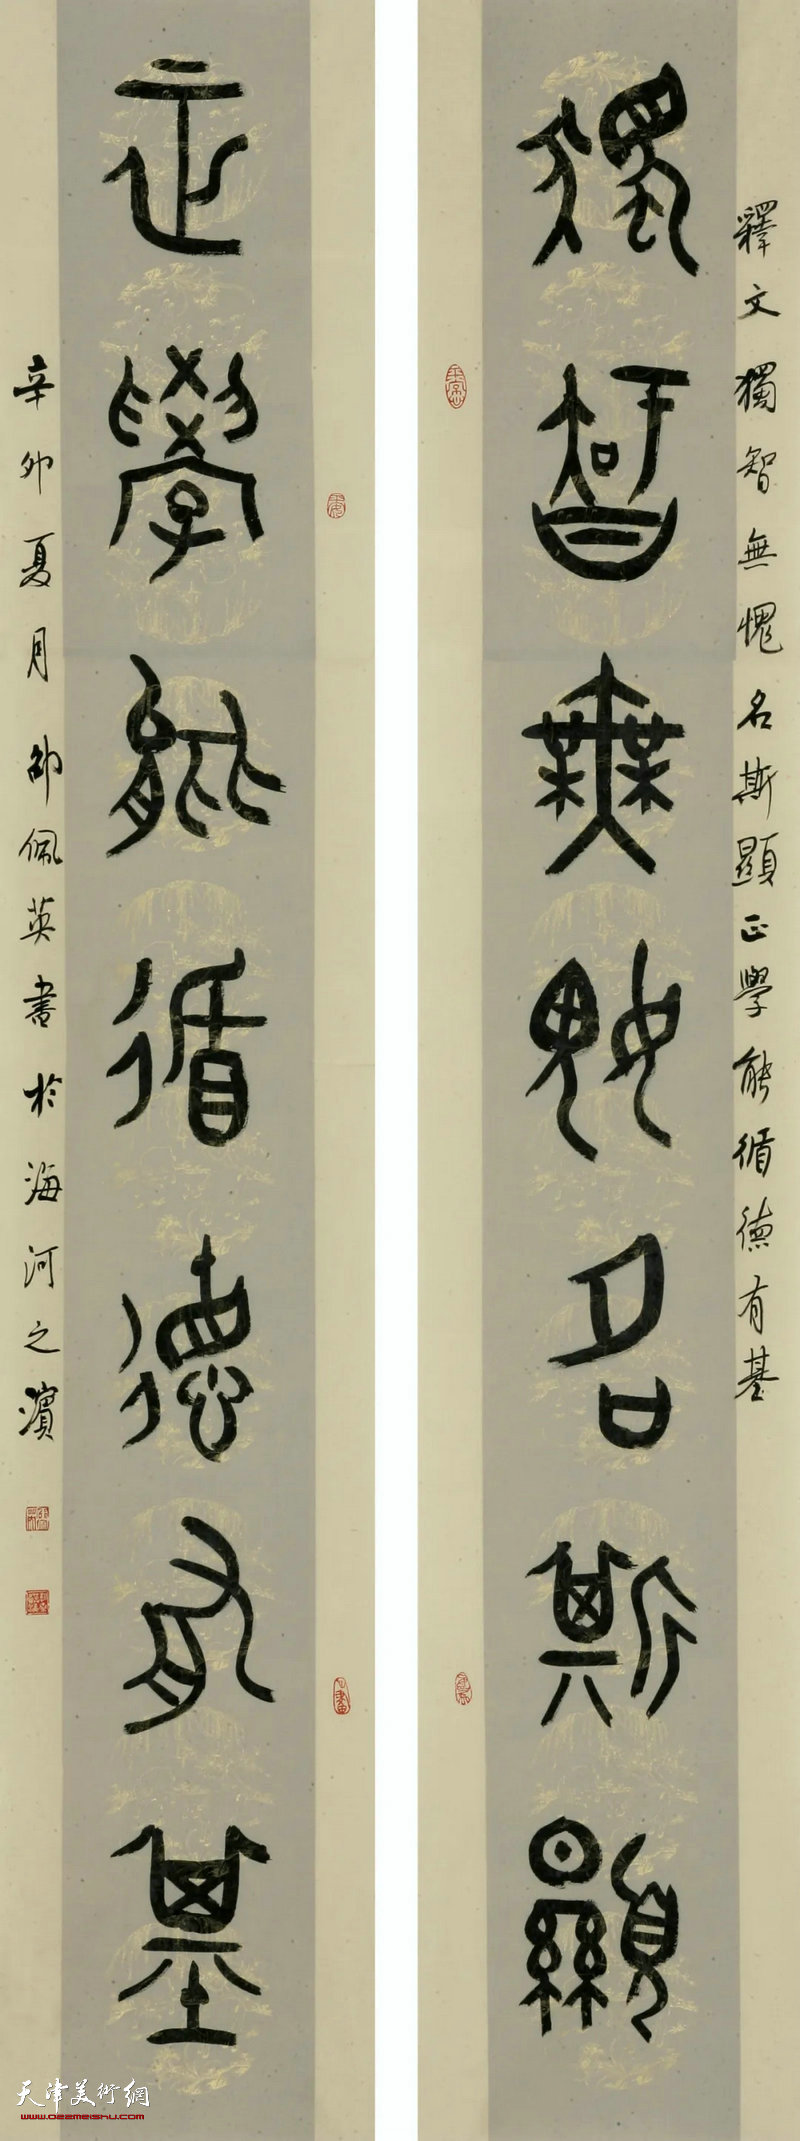 釋文獨智無愧名斯顯正學能循德有基
獨智無愧名斯顯
正學能循德有基
辛卯夏月邵佩英書於海河之濱
天津美術網
www.022meishu.com